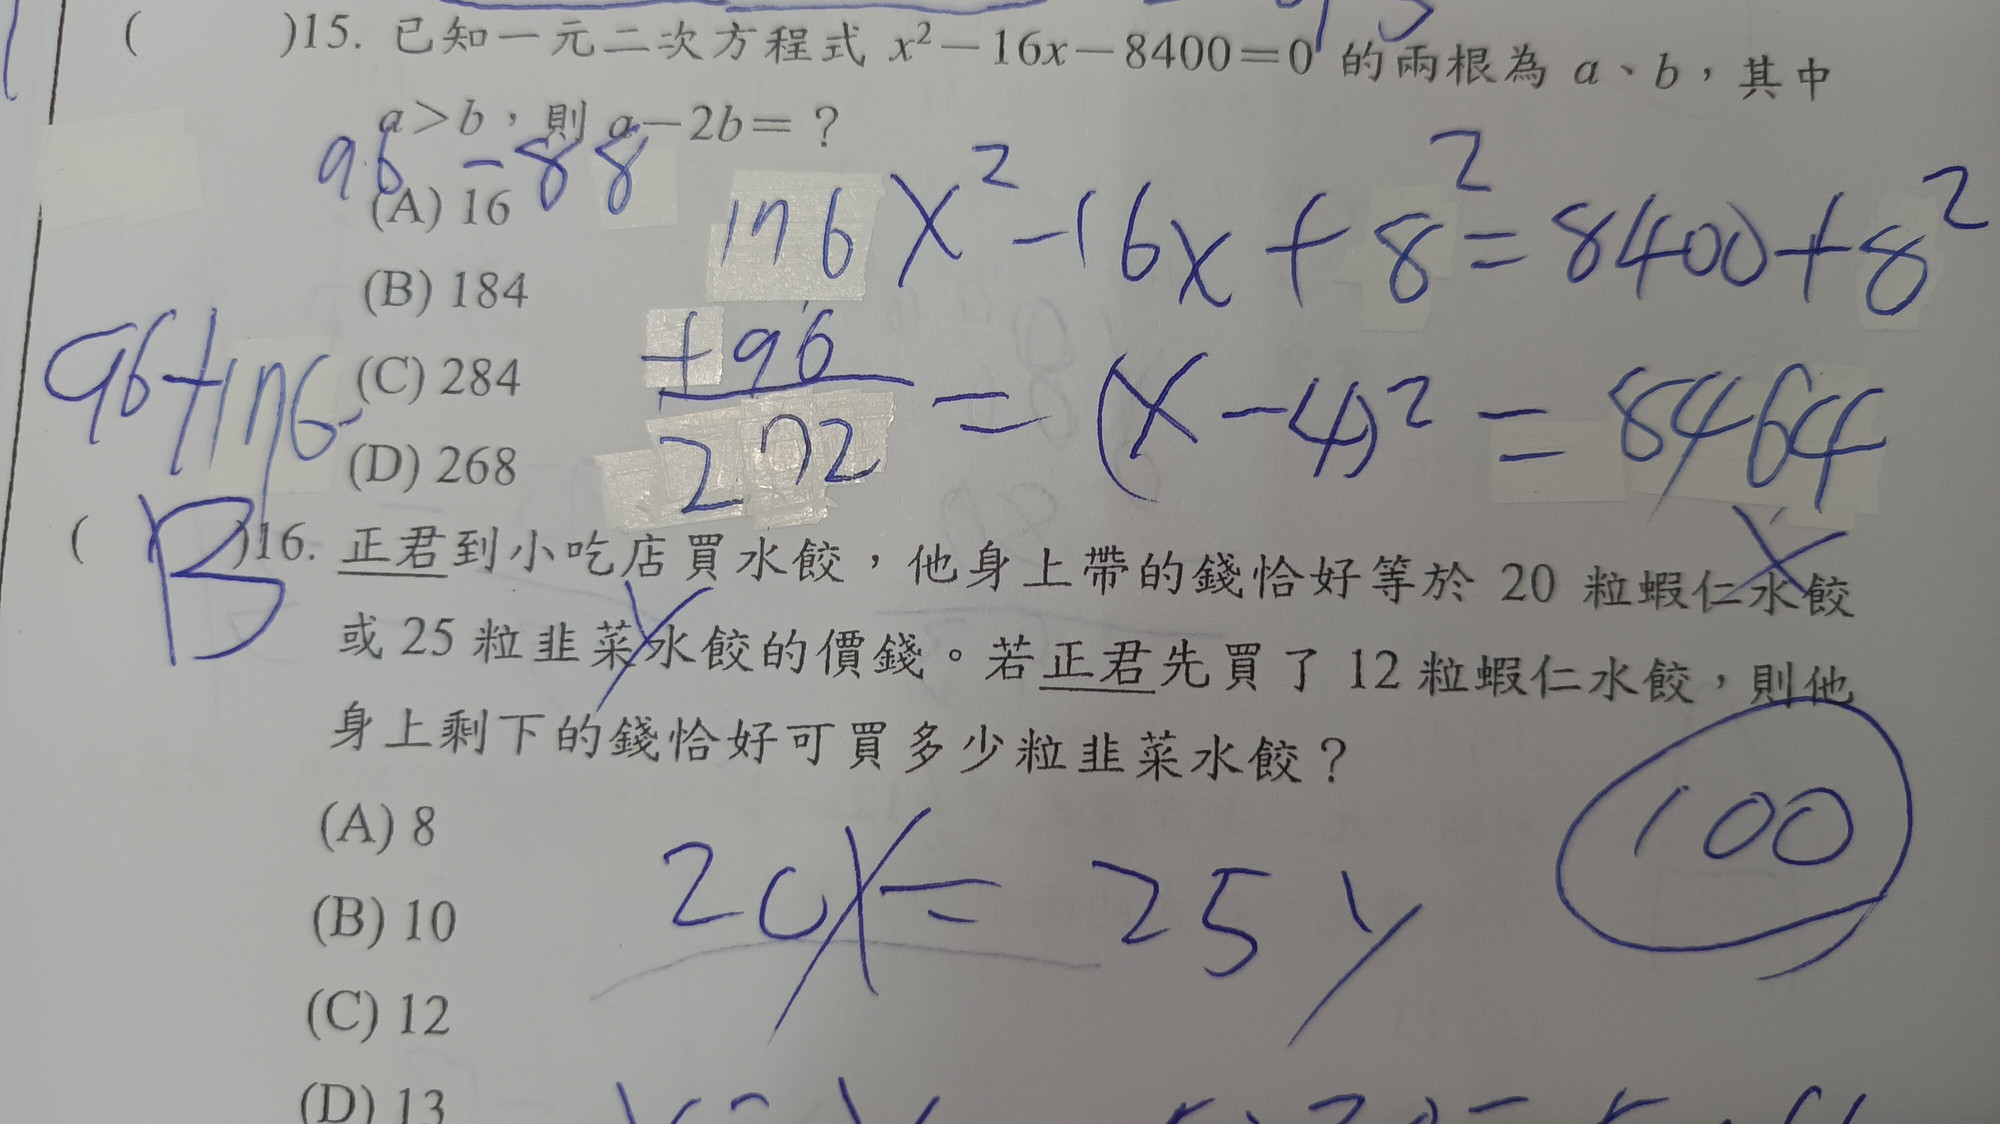 ( )15. 已知一元二次方程式 x²－16x－8400＝0 的兩根為 a、b，其中
a＞b，則 a－2b＝？
96 －88
(A) 16
176 x² －16x + 8² = 8400 + 8²
(B) 184
+96
96+176
(C) 284
272 = (x－4)² = 8464
(D) 268
( B )16. 正君到小吃店買水餃，他身上帶的錢恰好等於 20 粒蝦仁水餃
x
或 25 粒韭菜水餃的價錢。若正君先買了 12 粒蝦仁水餃，則他
y
身上剩下的錢恰好可買多少粒韭菜水餃？
(A) 8
100
20x = 25y
(B) 10
(C) 12
(D) 13